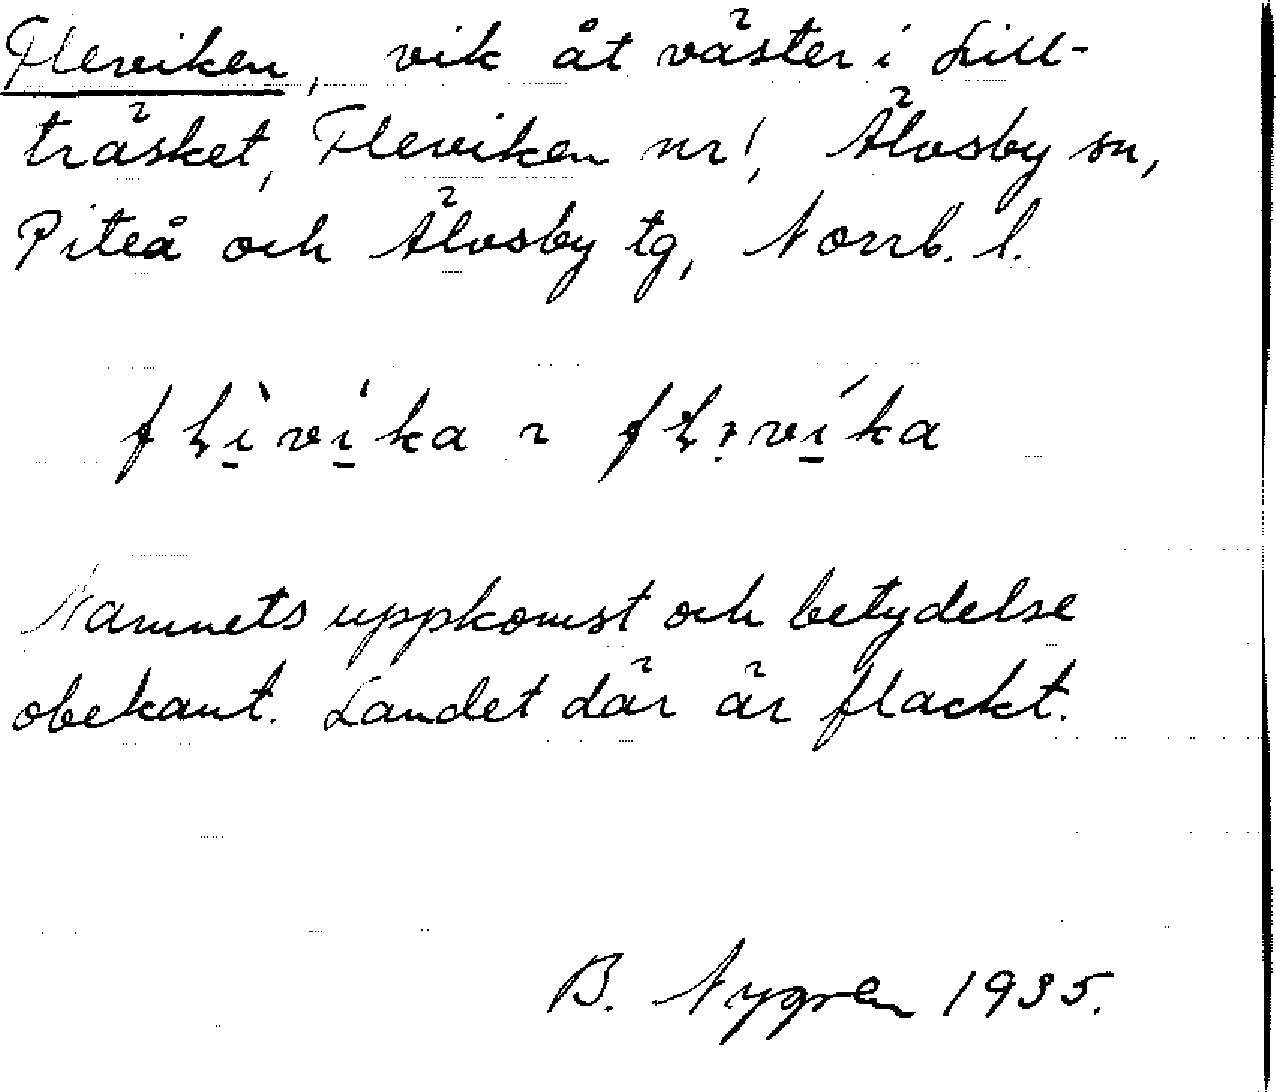 Fleviken, vik åt väster i Lill-
träsket, Fleviken nr 1, Älvsby sn,
Piteå och Älvsby tg, Norrb. l.
Namnets uppkomst och betydelse
obekant. Landet där är flackt.
B. Nygren 1935.